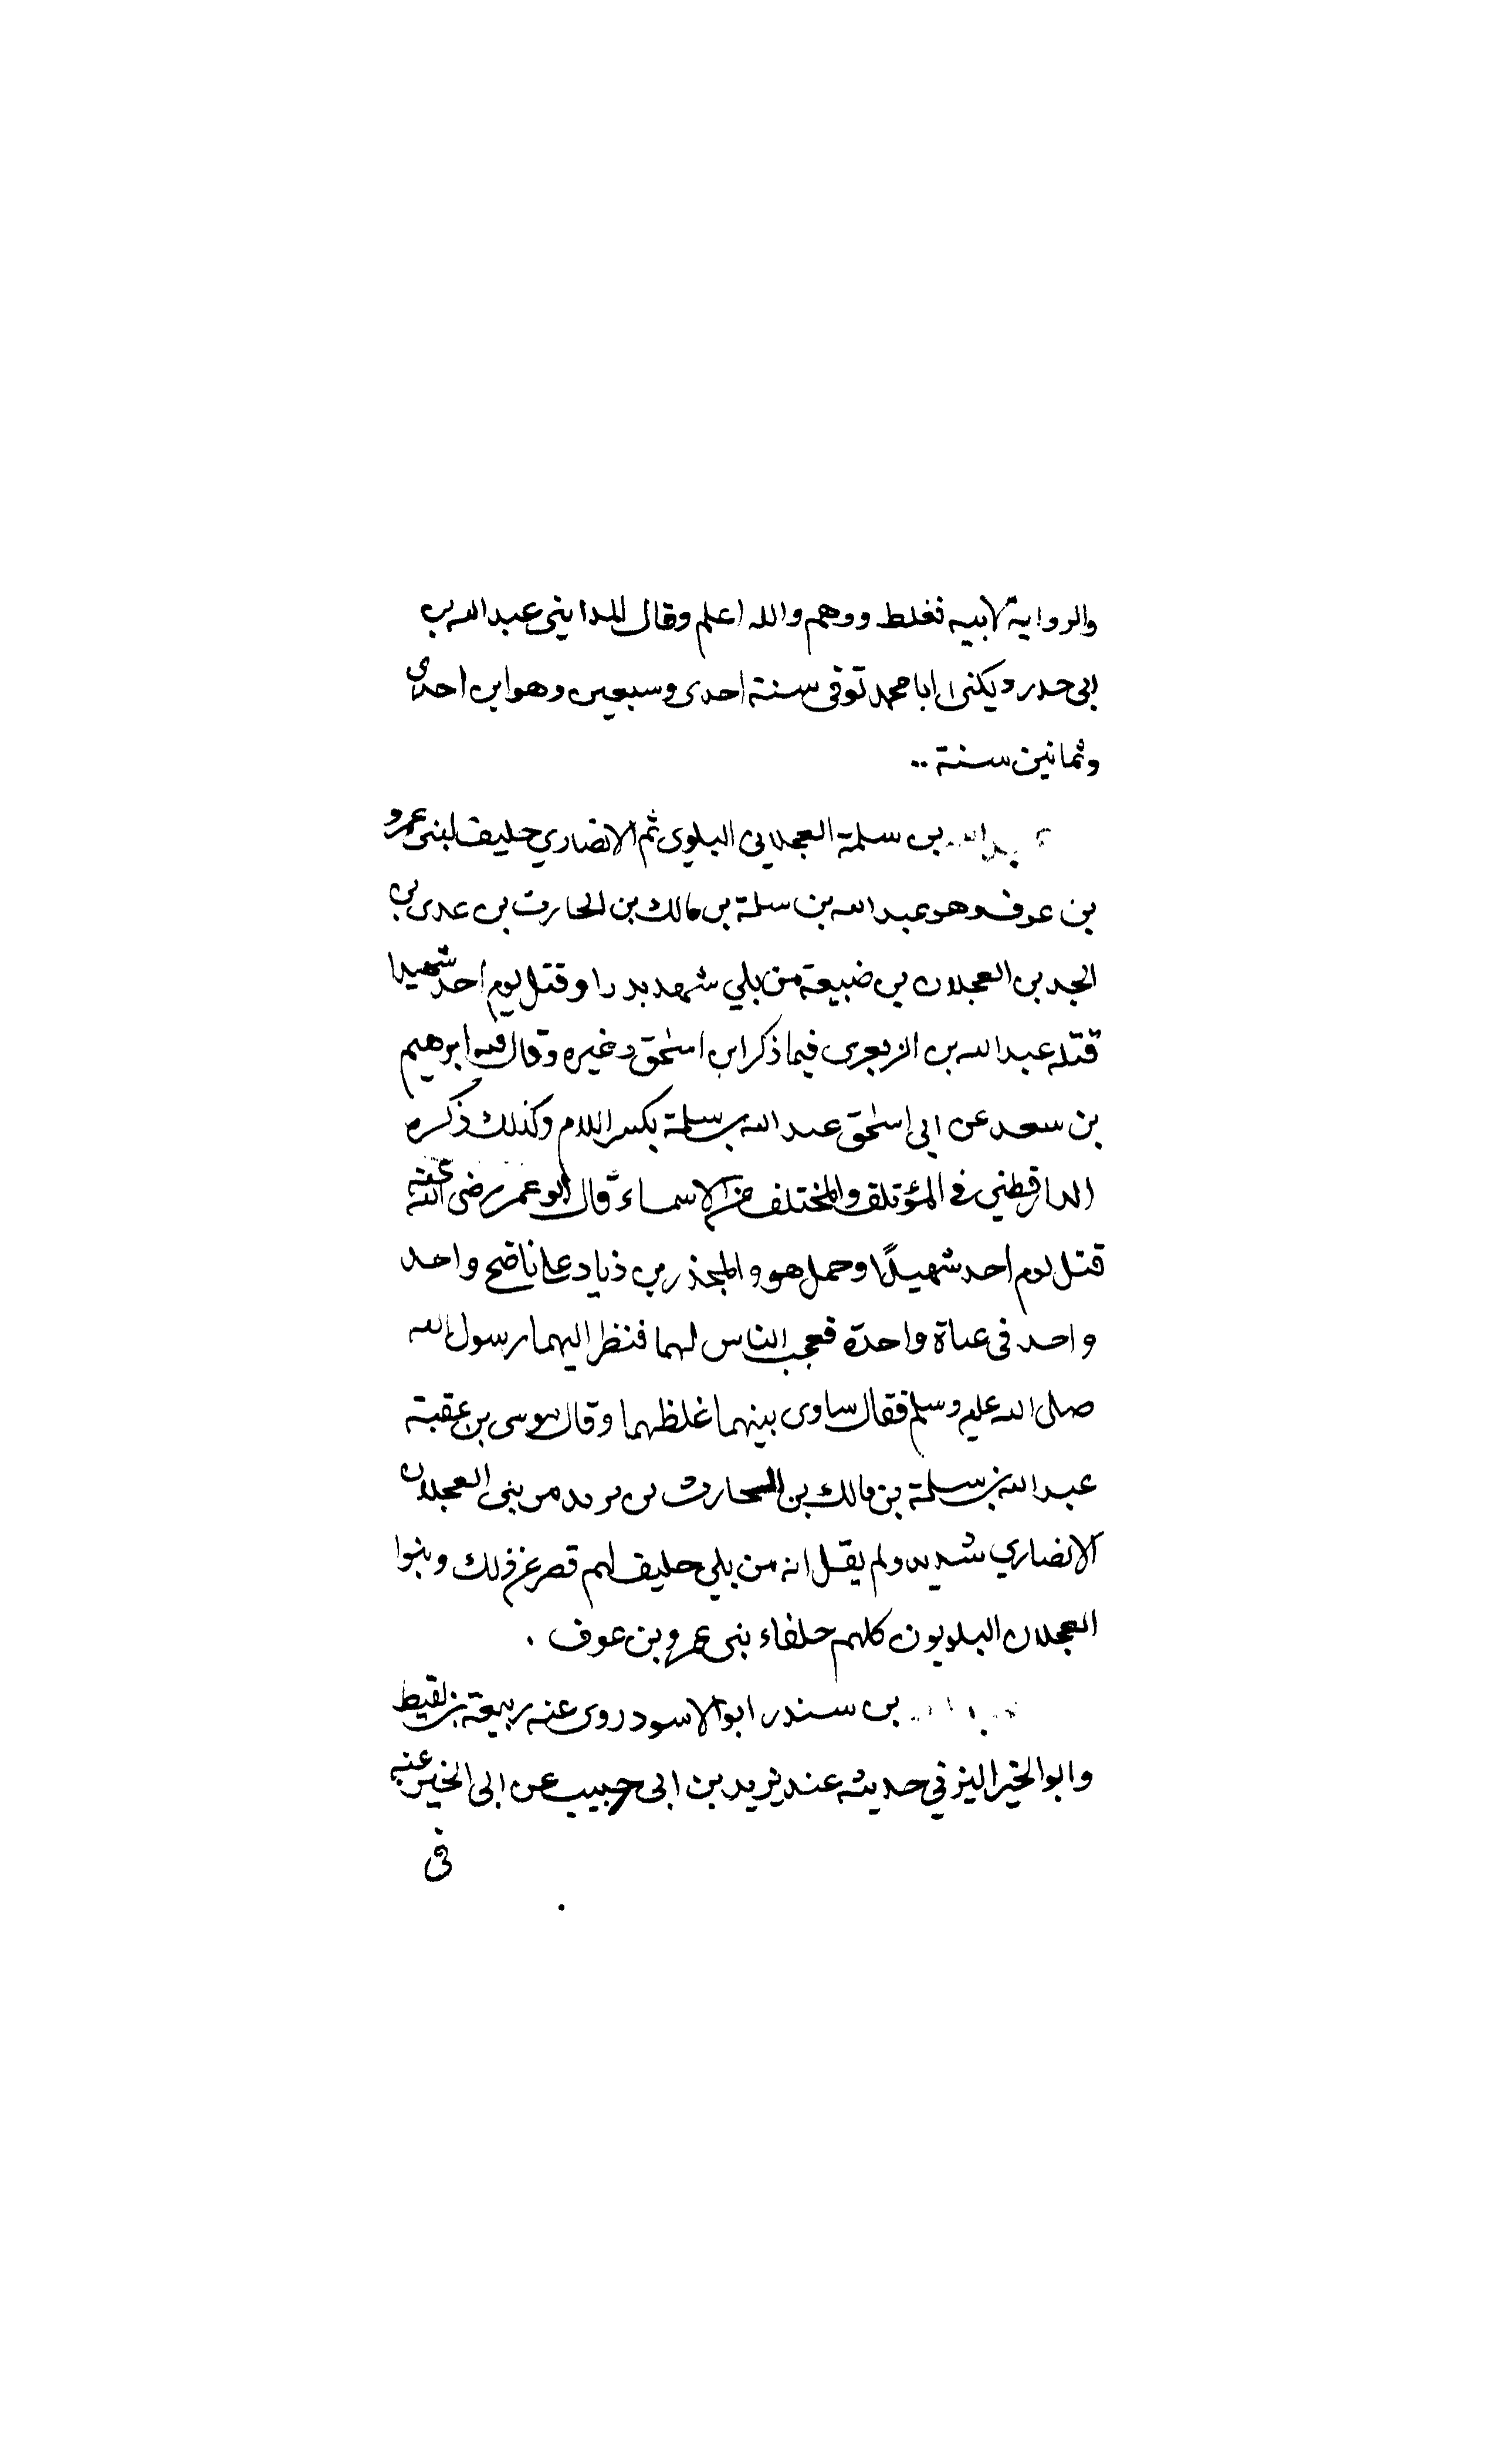 والرواية لابيه فغلط ووهم والله اعلم وقال المدايني عبد الله بن
ابي حدرد يكنى ابا محمد توفى سنة احدى وسبعين وهو ابن احدى
وثمانين سنة ..
بن سلمة العجلاني البلوى ثم الانصاري حليف لبنى عمرو
بن عوف وهو عبد الله بن سلمة بن مالك بن الحارث بن عدى بن
الجد بن العجلان بن ضبيعة من بلي شهد بدرا وقتل يوم احد شهيدا
قتله عبد الله بن الزبعرى فيما ذكر ابن اسحق وغيره وقال فيه ابرهيم
بن سعد عن ابى اسحق عبد الله بن سلمة بكسر اللام وكذلك ذكره
الدارقطني في المؤتلف والمختلف من الاسماء قال ابو عمر رضى الله عنه
قتل يوم احد شهيدًا وحمل هو والمجذر بن ذياد على ناضح واحد
واحد فى عباة واحدة فعجب الناس لهما فنظر اليهما رسول الله
صلى الله عليه وسلم فقال ساوى بينهما غلظهما وقال موسى بن عقبة
عبد الله بن سلمة بن مالك بن الحارث بن زيد من بنى العجلان
الانصاري شهد ولم يقل انه من بلي حليف لهم قصر عن ذلك وبنوا
العجلان البلويون كلهم حلفاء بنى عمرو بن عوف .
بن سندر ابو الاسود روى عنه ربيعة بن لقيط
وابو الخير اليزني حديثه عند يزيد بن ابى حبيب عن ابى الخير عنه
فى